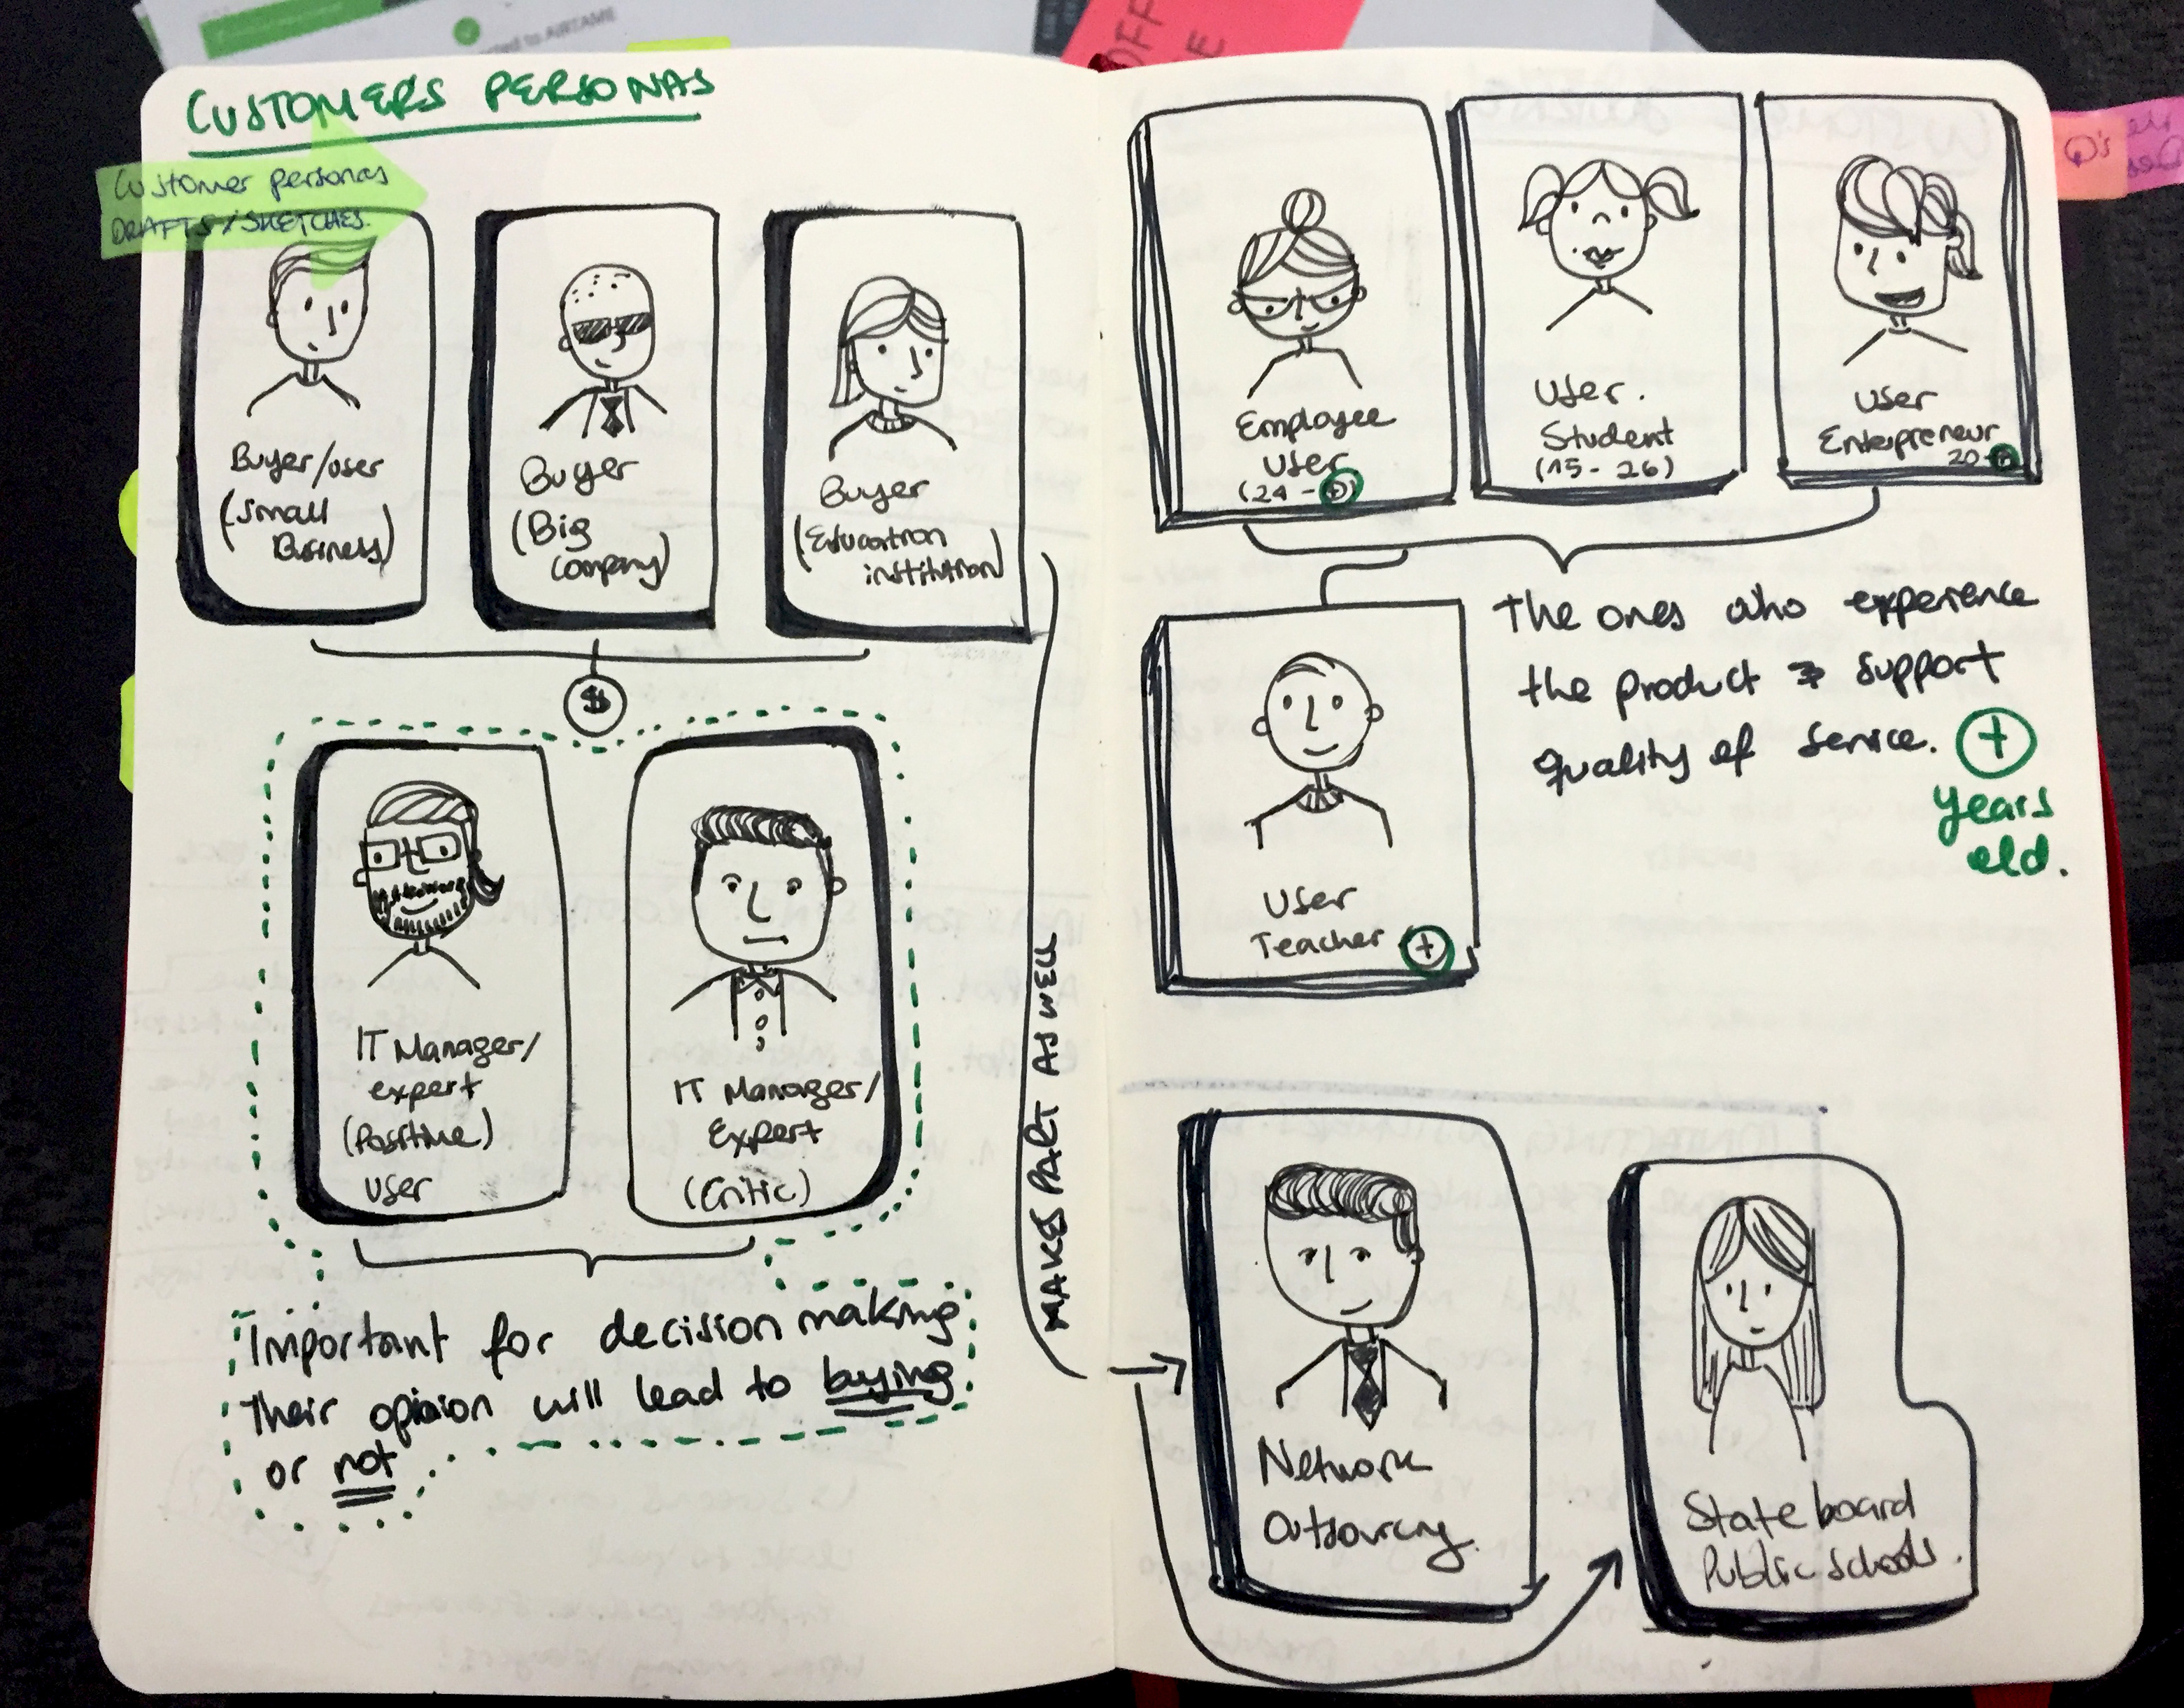 to AIRTAME
OFF
E
CUSTOMERS PERSONAS
Customer personas
DRAFTS/SKETCHES.
Buyer/user
(Small
Business)
Buyer
(Big
company)
Buyer
(Education
institution)
$
IT Manager/
expert
(Positive)
user
IT Manager/
Expert
(Critic)
Important for decision making
Their opinion will lead to buying
or not
MAKES PART AS WELL
Employee
User
(24 - +)
User.
Student
(15 - 26)
User
Entrepreneur
20 - +
The ones who experience
the product & support
quality of service. +
years
old.
User
Teacher +
Network
Outsourcing.
State board
Public schools.
Q's